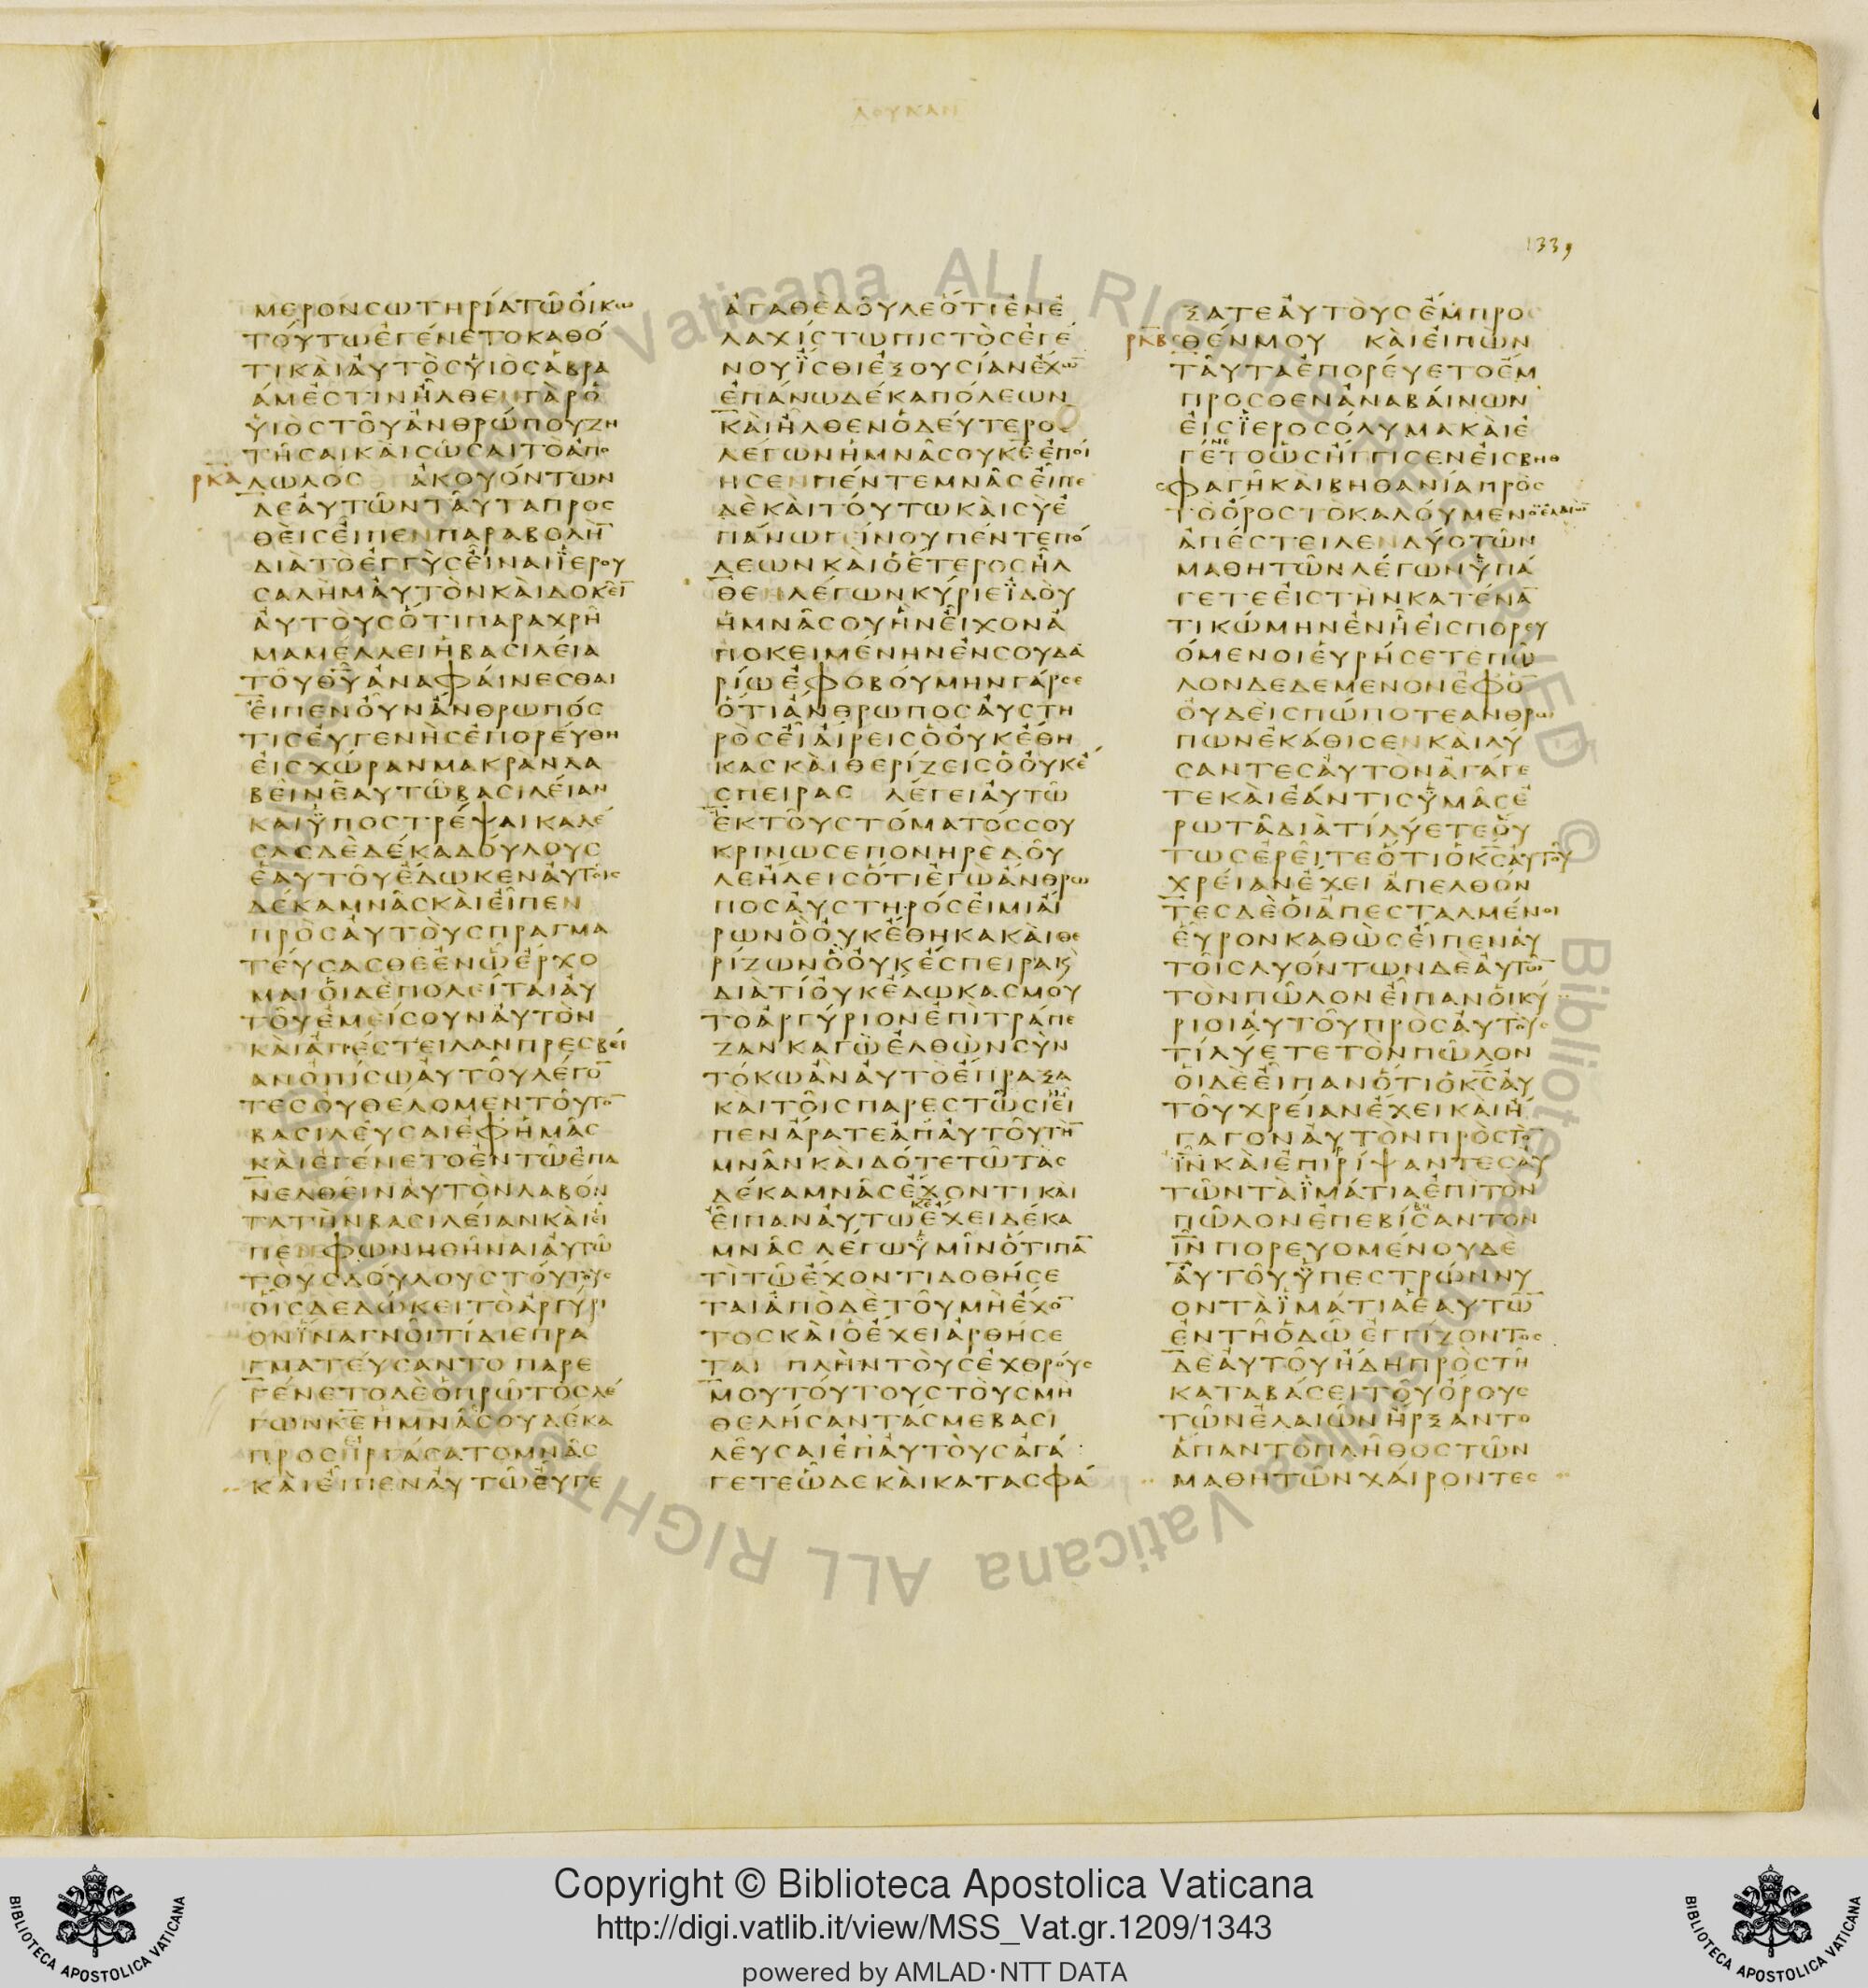 ΛΟΥΚΑΝ
1339
ΜΕΡΟΝϹΩΤΗΡΙΑΤΩΟΙΚΩ
ΤΟΥΤΩΕΓΕΝΕΤΟΚΑΘΟ
ΤΙΚΑΙΑΥΤΟϹΥΙΟϹΑΒΡΑ
ΑΜΕϹΤΙΝΗΛΘΕΝΓΑΡΟ
ΥΙΟϹΤΟΥΑΝΘΡΩΠΟΥΖΗ
ΤΗϹΑΙΚΑΙϹΩϹΑΙΤΟΑΠΟ
ρκα ΛΩΛΟϹ ΑΚΟΥΟΝΤΩΝ
ΔΕΑΥΤΩΝΤΑΥΤΑΠΡΟϹ
ΘΕΙϹΕΙΠΕΝΠΑΡΑΒΟΛΗ̅
ΔΙΑΤΟΕΓΓΥϹΕΙΝΑΙΪΕΡΟΥ
ϹΑΛΗΜΑΥΤΟΝΚΑΙΔΟΚΕΙ̅
ΑΥΤΟΥϹΟΤΙΠΑΡΑΧΡΗ
ΜΑΜΕΛΛΕΙΗΒΑϹΙΛΕΙΑ
ΤΟΥΘ̅Υ̅ΑΝΑΦΑΙΝΕϹΘΑΙ
ΕΙΠΕΝΟΥΝΑΝΘΡΩΠΟϹ
ΤΙϹΕΥΓΕΝΗϹΕΠΟΡΕΥΘΗ
ΕΙϹΧΩΡΑΝΜΑΚΡΑΝΛΑ
ΒΕΙΝΕΑΥΤΩΒΑϹΙΛΕΙΑΝ
ΚΑΙΫΠΟϹΤΡΕΨΑΙΚΑΛΕ
ϹΑϹΔΕΔΕΚΑΔΟΥΛΟΥϹ
ΕΑΥΤΟΥΕΔΩΚΕΝΑΥΤΟΙϹ
ΔΕΚΑΜΝΑϹΚΑΙΕΙΠΕΝ
ΠΡΟϹΑΥΤΟΥϹΠΡΑΓΜΑ
ΤΕΥϹΑϹΘΕΕΝΩΕΡΧΟ
ΜΑΙΟΙΔΕΠΟΛΕΙΤΑΙΑΥ
ΤΟΥΕΜΕΙϹΟΥΝΑΥΤΟΝ
ΚΑΙΑΠΕϹΤΕΙΛΑΝΠΡΕϹΒΕΙ
ΑΝΟΠΙϹΩΑΥΤΟΥΛΕΓΟ̅
ΤΕϹΟΥΘΕΛΟΜΕΝΤΟΥΤΟ̅
ΒΑϹΙΛΕΥϹΑΙΕΦΗΜΑϹ
ΚΑΙΕΓΕΝΕΤΟΕΝΤΩΕΠΑ
ΝΕΛΘΕΙΝΑΥΤΟΝΛΑΒΟΝ
ΤΑΤΗΝΒΑϹΙΛΕΙΑΝΚΑΙΕΙ
ΠΕΝΦΩΝΗΘΗΝΑΙΑΥΤΩ
ΤΟΥϹΔΟΥΛΟΥϹΤΟΥΤΟΥϹ
ΟΙϹΔΕΔΩΚΕΙΤΟΑΡΓΥΡΙ
ΟΝΪΝΑΓΝΟΙΤΙΔΙΕΠΡΑ
ΓΜΑΤΕΥϹΑΝΤΟ ΠΑΡΕ
ΓΕΝΕΤΟΔΕΟΠΡΩΤΟϹΛΕ
ΓΩΝΚ̅Ε̅ΗΜΝΑϹΟΥΔΕΚΑ
ΠΡΟϹΗΡΓΑϹΑΤΟΜΝΑϹ
ΚΑΙΕΙΠΕΝΑΥΤΩΕΥΓΕ
ΑΓΑΘΕΔΟΥΛΕΟΤΙΕΝΕ
ΛΑΧΙϹΤΩΠΙϹΤΟϹΕΓΕ
ΝΟΥΪϹΘΙΕΞΟΥϹΙΑΝΕΧΩ̅
ΕΠΑΝΩΔΕΚΑΠΟΛΕΩΝ
ΚΑΙΗΛΘΕΝΟΔΕΥΤΕΡΟϹ
ΛΕΓΩΝΗΜΝΑϹΟΥΚ̅Ε̅ΕΠΟΙ
ΗϹΕΝΠΕΝΤΕΜΝΑϹΕΙΠΕ
ΔΕΚΑΙΤΟΥΤΩΚΑΙϹΥΕ
ΠΑΝΩΓΕΙΝΟΥΠΕΝΤΕΠΟ
ΛΕΩΝΚΑΙΟΕΤΕΡΟϹΗΛ
ΘΕΝΛΕΓΩΝΚΥΡΙΕΪΔΟΥ
ΗΜΝΑϹΟΥΗΝΕΙΧΟΝΑ
ΠΟΚΕΙΜΕΝΗΝΕΝϹΟΥΔΑ
ΡΙΩΕΦΟΒΟΥΜΗΝΓΑΡϹΕ
ΟΤΙΑΝΘΡΩΠΟϹΑΥϹΤΗ
ΡΟϹΕΙΑΙΡΕΙϹΟΟΥΚΕΘΗ
ΚΑϹΚΑΙΘΕΡΙΖΕΙϹΟΟΥΚΕ
ϹΠΕΙΡΑϹ ΛΕΓΕΙΑΥΤΩ
ΕΚΤΟΥϹΤΟΜΑΤΟϹϹΟΥ
ΚΡΙΝΩϹΕΠΟΝΗΡΕΔΟΥ
ΛΕΗΔΕΙϹΟΤΙΕΓΩΑΝΘΡΩ
ΠΟϹΑΥϹΤΗΡΟϹΕΙΜΙΑΙ
ΡΩΝΟΟΥΚΕΘΗΚΑΚΑΙΘΕ
ΡΙΖΩΝΟΟΥΚΕϹΠΕΙΡΑΚϗ
ΔΙΑΤΙΟΥΚΕΔΩΚΑϹΜΟΥ
ΤΟΑΡΓΥΡΙΟΝΕΠΙΤΡΑΠΕ
ΖΑΝΚΑΓΩΕΛΘΩΝϹΥΝ
ΤΟΚΩΑΝΑΥΤΟΕΠΡΑΞΑ
ΚΑΙΤΟΙϹΠΑΡΕϹΤΩϹΙΕΙ
ΠΕΝΑΡΑΤΕΑΠΑΥΤΟΥΤΗ̅
ΜΝΑΝΚΑΙΔΟΤΕΤΩΤΑϹ
ΔΕΚΑΜΝΑϹΕΧΟΝΤΙΚΑΙ
ΕΙΠΑΝΑΥΤΩΚ̅Ε̅ΕΧΕΙΔΕΚΑ
ΜΝΑϹ ΛΕΓΩΫΜΙΝΟΤΙΠΑ̅
ΤΙΤΩΕΧΟΝΤΙΔΟΘΗϹΕ
ΤΑΙΑΠΟΔΕΤΟΥΜΗΕΧΟ̅
ΤΟϹΚΑΙΟΕΧΕΙΑΡΘΗϹΕ
ΤΑΙ ΠΛΗΝΤΟΥϹΕΧΘΡΟΥϹ
ΜΟΥΤΟΥΤΟΥϹΤΟΥϹΜΗ
ΘΕΛΗϹΑΝΤΑϹΜΕΒΑϹΙ
ΛΕΥϹΑΙΕΠΑΥΤΟΥϹΑΓΑ
ΓΕΤΕΩΔΕΚΑΙΚΑΤΑϹΦΑ
ΞΑΤΕΑΥΤΟΥϹΕΜΠΡΟ
ρκβ ϹΘΕΝΜΟΥ ΚΑΙΕΙΠΩΝ
ΤΑΥΤΑΕΠΟΡΕΥΕΤΟΕΜ
ΠΡΟϹΘΕΝΑΝΑΒΑΙΝΩΝ
ΕΙϹΪΕΡΟϹΟΛΥΜΑΚΑΙΕ
ΓΕΝΕΤΟΩϹΗΓΓΙϹΕΝΕΙϹΒΗΘ
ϹΦΑΓΗΚΑΙΒΗΘΑΝΙΑΠΡΟϹ
ΤΟΟΡΟϹΤΟΚΑΛΟΥΜΕΝΟ̅ΕΛΑΙΩ̅
ΑΠΕϹΤΕΙΛΕΝΔΥΟΤΩΝ
ΜΑΘΗΤΩΝΛΕΓΩΝΫΠΑ
ΓΕΤΕΕΙϹΤΗΝΚΑΤΕΝΑ̅
ΤΙΚΩΜΗΝΕΝΗΕΙϹΠΟΡΕΥ
ΟΜΕΝΟΙΕΥΡΗϹΕΤΕΠΩ
ΛΟΝΔΕΔΕΜΕΝΟΝΕΦΟ̅
ΟΥΔΕΙϹΠΩΠΟΤΕΑΝΘΡΩ
ΠΩΝΕΚΑΘΙϹΕΝΚΑΙΛΥ
ϹΑΝΤΕϹΑΥΤΟΝΑΓΑΓΕ
ΤΕΚΑΙΕΑΝΤΙϹΫΜΑϹΕ
ΡΩΤΑΔΙΑΤΙΛΥΕΤΕΟΥ
ΤΩϹΕΡΕΙΤΕΟΤΙΟΚ̅Ϲ̅ΑΥΤΟΥ
ΧΡΕΙΑΝΕΧΕΙ ΑΠΕΛΘΟΝ
ΤΕϹΔΕΟΙΑΠΕϹΤΑΛΜΕΝΟΙ
ΕΥΡΟΝΚΑΘΩϹΕΙΠΕΝΑΥ
ΤΟΙϹΛΥΟΝΤΩΝΔΕΑΥΤΩ̅
ΤΟΝΠΩΛΟΝΕΙΠΑΝΟΙΚΥ
ΡΙΟΙΑΥΤΟΥΠΡΟϹΑΥΤΟΥϹ
ΤΙΛΥΕΤΕΤΟΝΠΩΛΟΝ
ΟΙΔΕΕΙΠΑΝΟΤΙΟΚ̅Ϲ̅ΑΥ
ΤΟΥΧΡΕΙΑΝΕΧΕΙΚΑΙΗ
ΓΑΓΟΝΑΥΤΟΝΠΡΟϹΤΟ̅
Ι̅Ν̅ΚΑΙΕΠΙΡΙΨΑΝΤΕϹΑΥ
ΤΩΝΤΑΪΜΑΤΙΑΕΠΙΤΟΝ
ΠΩΛΟΝΕΠΕΒΙΒΑϹΑΝΤΟΝ
Ι̅Ν̅ ΠΟΡΕΥΟΜΕΝΟΥΔΕ
ΑΥΤΟΥΫΠΕϹΤΡΩΝΝΥ
ΟΝΤΑΪΜΑΤΙΑΕΑΥΤΩ̅
ΕΝΤΗΟΔΩ ΕΓΓΙΖΟΝΤΟϹ
ΔΕΑΥΤΟΥΗΔΗΠΡΟϹΤΗ
ΚΑΤΑΒΑϹΕΙΤΟΥΟΡΟΥϹ
ΤΩΝΕΛΑΙΩΝΗΡΞΑΝΤΟ
ΑΠΑΝΤΟΠΛΗΘΟϹΤΩΝ
ΜΑΘΗΤΩΝΧΑΙΡΟΝΤΕϹ
Vaticana ALL RIGHTS RESERVED © Biblioteca Vaticana ALL RIGHT
Copyright © Biblioteca Apostolica Vaticana
http://digi.vatlib.it/view/MSS_Vat.gr.1209/1343
powered by AMLAD·NTT DATA
BIBLIOTECA APOSTOLICA VATICANA
BIBLIOTECA APOSTOLICA VATICANA